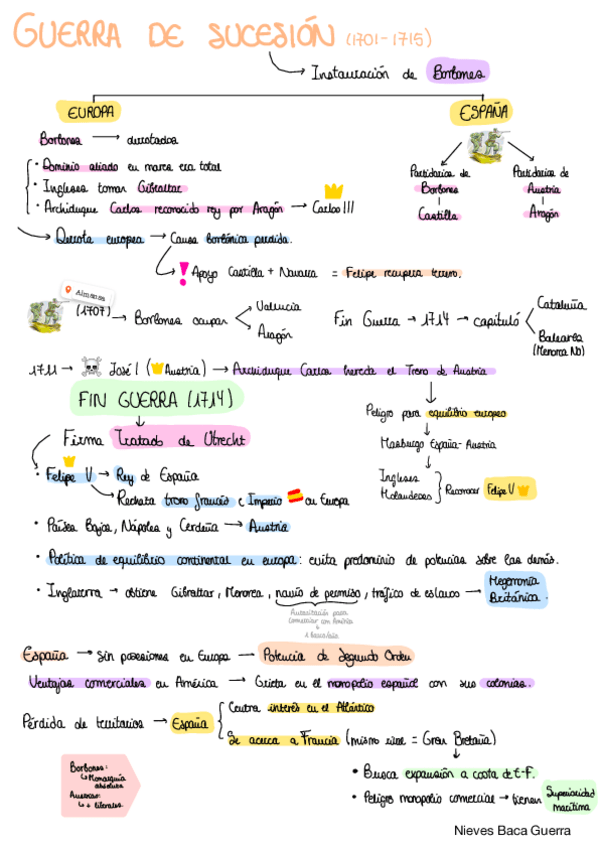 GUERRA DE SUCESIÓN (1701-1715)
Instauración de Borbones
EUROPA
ESPAÑA
Borbones → derrotados
• Dominio aliado en marca era total
• Ingleses toman Gibraltar
• Archiduque Carlos reconocido rey por Aragón → Carlos III
Partidarios de Borbones ↓ Castilla
Partidarios de Austria ↓ Aragón
Derrota europea → Causa borbónica perdida.
! Apoyo Castilla + Navarra = Felipe recupera terreno.
Almansa
(1707) → Borbones ocupan
Valencia
Aragón
Fin Guerra → 1714 → capítuló
Cataluña
Baleares
(Menorca No)
1711 → José I (Austria) → Archiduque Carlos hereda el Trono de Austria
FIN GUERRA (1714)
Firma Tratado de Utrecht
Peligro para equilibrio europeo
Hasburgo España-Austria
Ingleses
Holandeses
Reconocer Felipe V
• Felipe V → Rey de España
Rechaza trono francés e Imperio en Europa
• Países Bajos, Nápoles y Cerdeña → Austria
• Política de equilibrio continental en europa: evita predominio de potencias sobre las demás.
• Inglaterra → obtiene Gibraltar, Menorca, navío de permiso, tráfico de esclavos → Hegemonía Británica.
Autorización para
comerciar con América
+
España → sin posesiones en Europa → Potencia de Segundo Orden
Ventajas comerciales en América → Grieta en el monopolio español con sus colonias.
Pérdida de territorios → España
Centra interés en el Atlántico
Se acerca a Francia (mismo rival = Gran Bretaña)
• Busca expansión a costa de E-F.
• Peligro monopolio comercial → tienen Superioridad marítima
Borbones:
↳ Monarquía
absoluta
Austrias:
↳ + liberales.
Nieves Baca Guerra